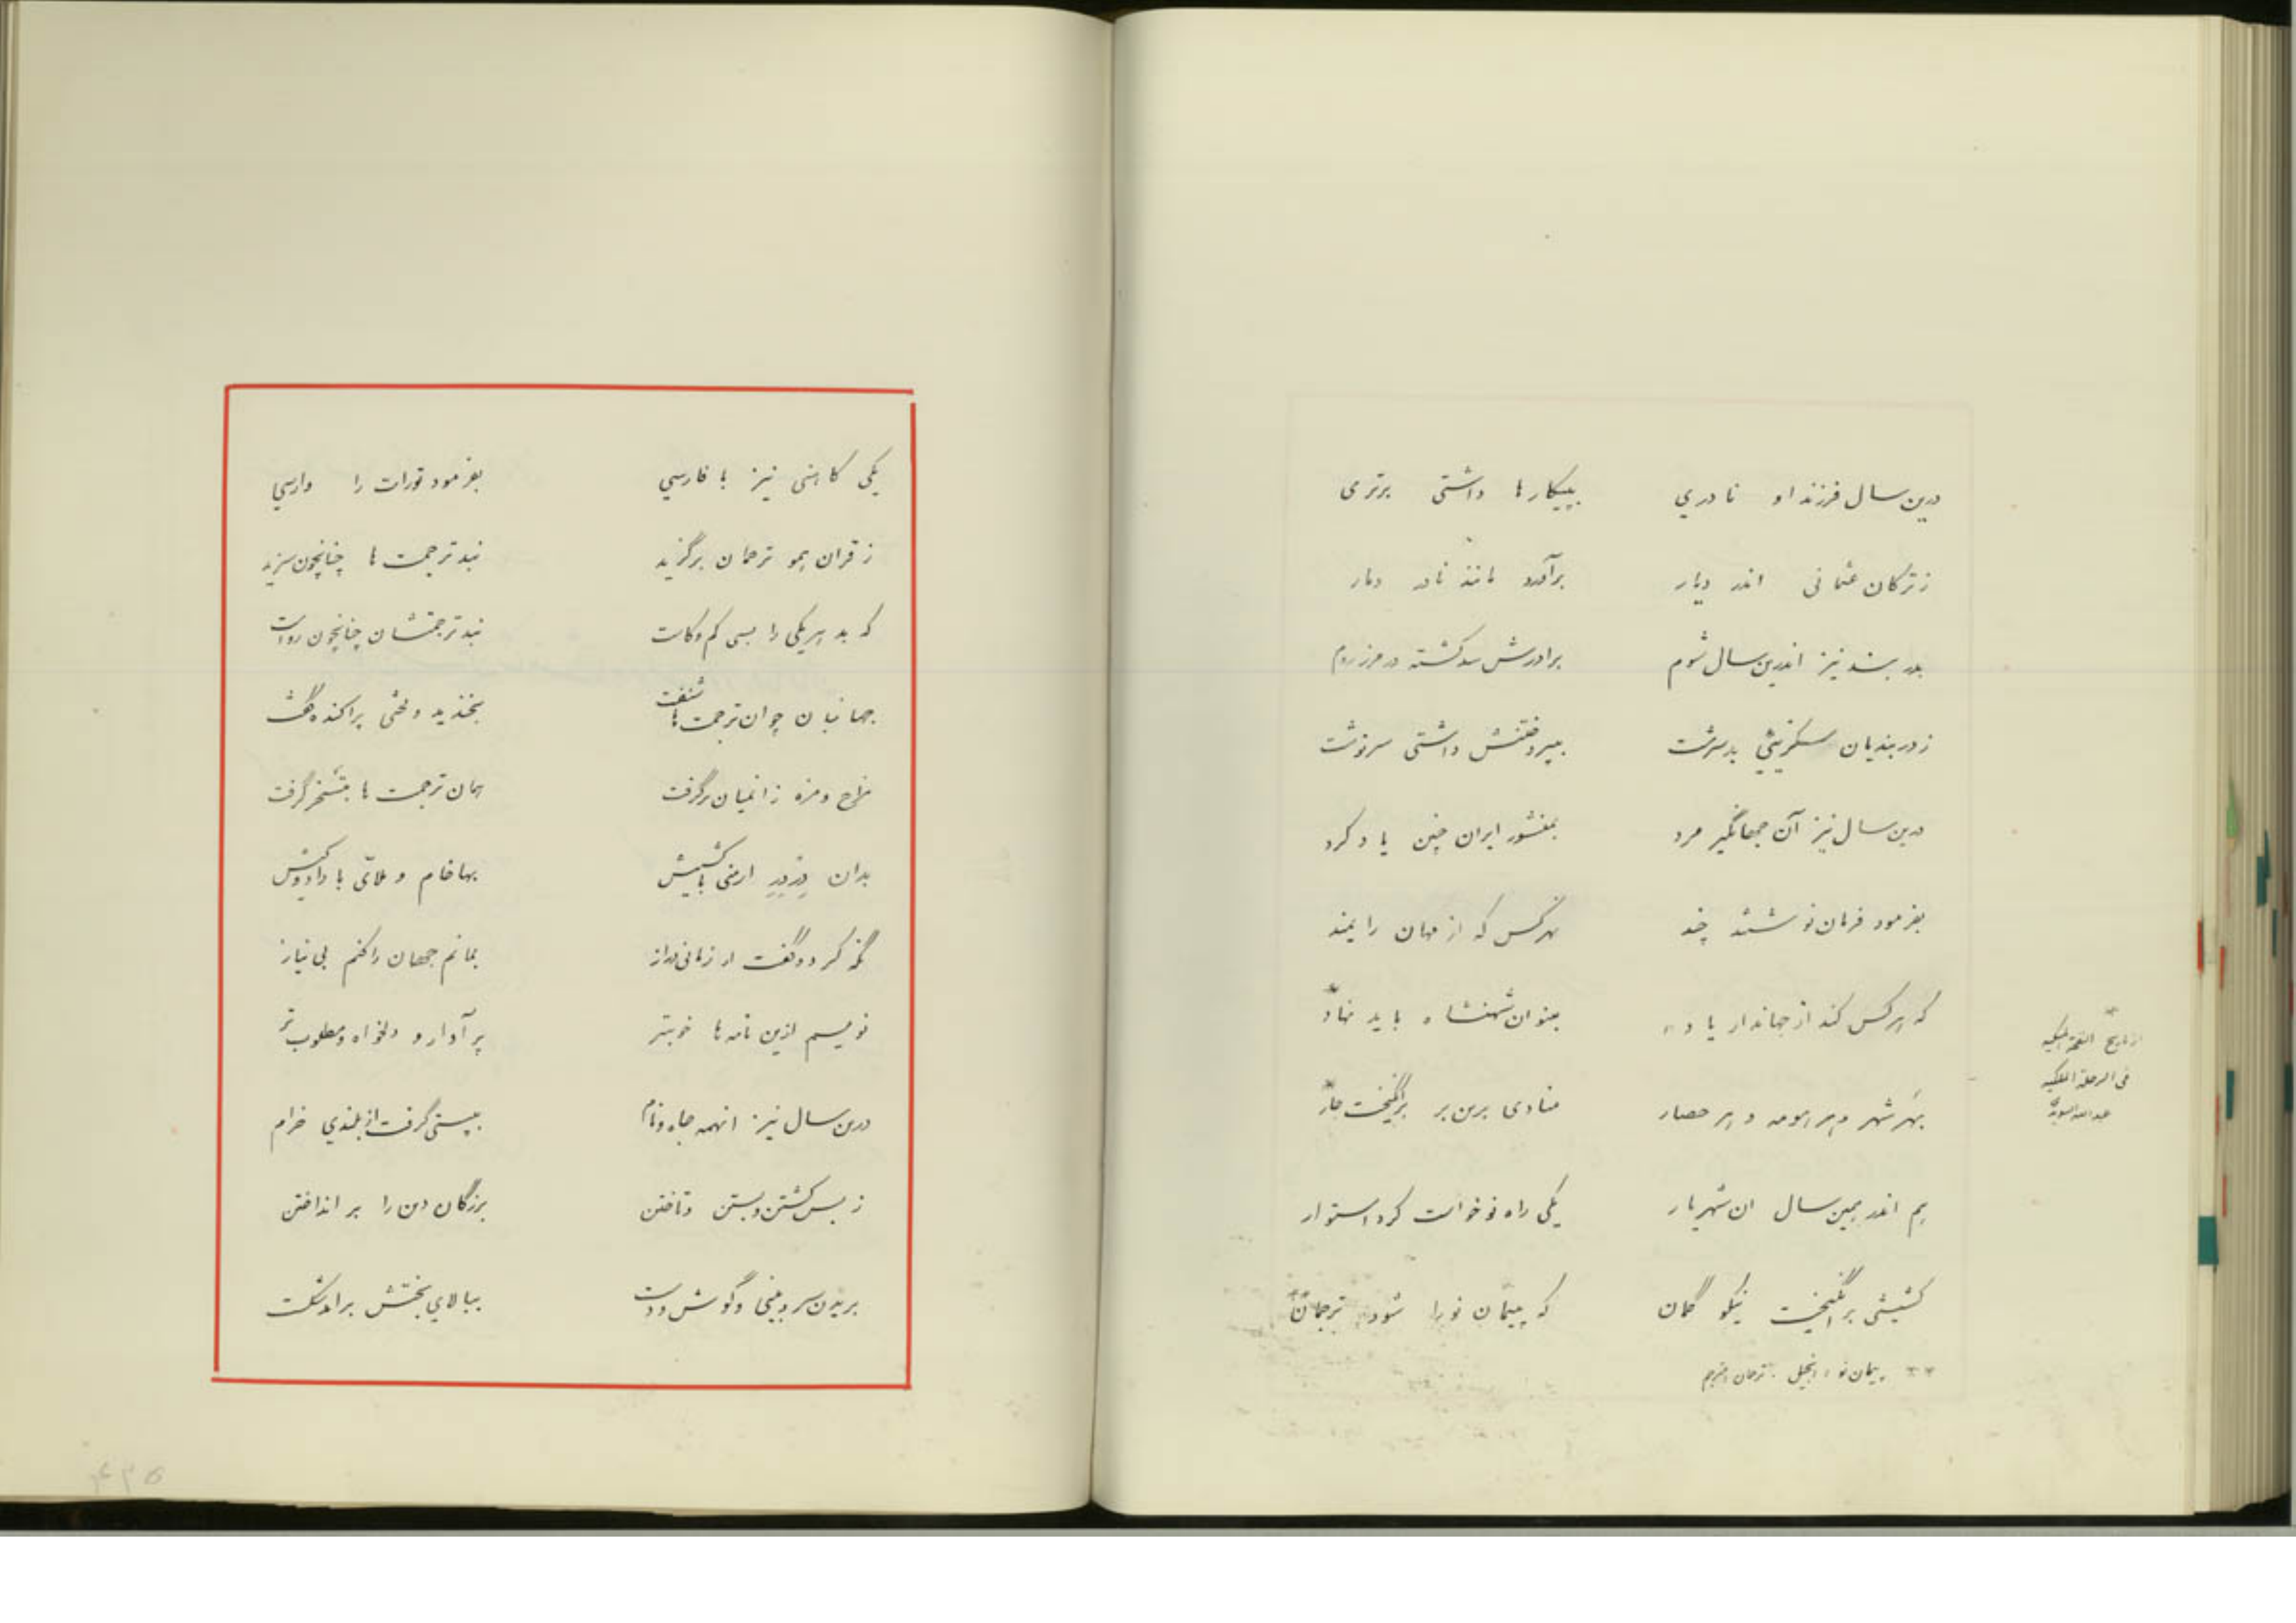 درین سال فرزند او نادری بپیکارها داشتی برتری
ز ترکان عثمانی اندر دیار برآورد مانند نادر دمار
بدربند نیز اندرین سال شوم برادرش شد کشته در مرز روم
ز دربندیان بدسرشت داشتی سرنوشت
درین سال نیز آن جهانگیر مرد بمنشور ایران چنین یاد کرد
بفرمود فرمان نوشتند چند بهرکس که از مهان
که هرکس کند از جهاندار یاد بعنوان شهنشاه باید نهاد
بهر شهر و هر و هر حصار منادی برین بر برانگیخت جار
هم اندر همین سال ان شهریار یکی راه نو خواست کرد استوار
کشیشی برانگیخت نیکو گمان که پیمان نو را شود ترجمان
** پیمان نو، انجیل. ترجمان، مترجم
از تاریخ
فی الرحلة المکیه
یکی کاهنی نیز با فارسی بفرمود تورات را وارسی
ز قران همو ترجمان برگزید نبد ترجمت ها چنانچون سزید
که بد هریکی را بسی کم و کاست نبد ترجمتشان چنانچون رواست
جهانبان چو ان ترجمت ها شنفت بخندید و لختی پراکنده گفت
مزاح و مزه زانمیان برگرفت همان ترجمت ها بتسخر گرفت
بدان ارمنی با کشیش بهاخام و ملای با
نگه کرد و گفت ار زمانی دراز بمانم جهان را کنم بی نیاز
نویسم ازین نامه ها خوبتر و دلخواه و مطلوب تر
درین سال نیز انهمه جاه و نام بپستی گرفت از بلندی خرام
ز بس کشتن و بستن و تاختن بزرگان دین را بر انداختن
بریدن سر و بینی و گوش و دست ببالای بختش بر امد شکست